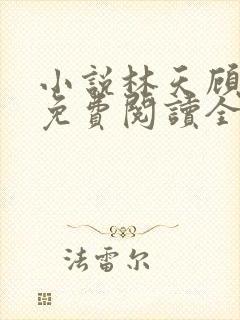 小說林天顧
免費閱讀全
法雷尔